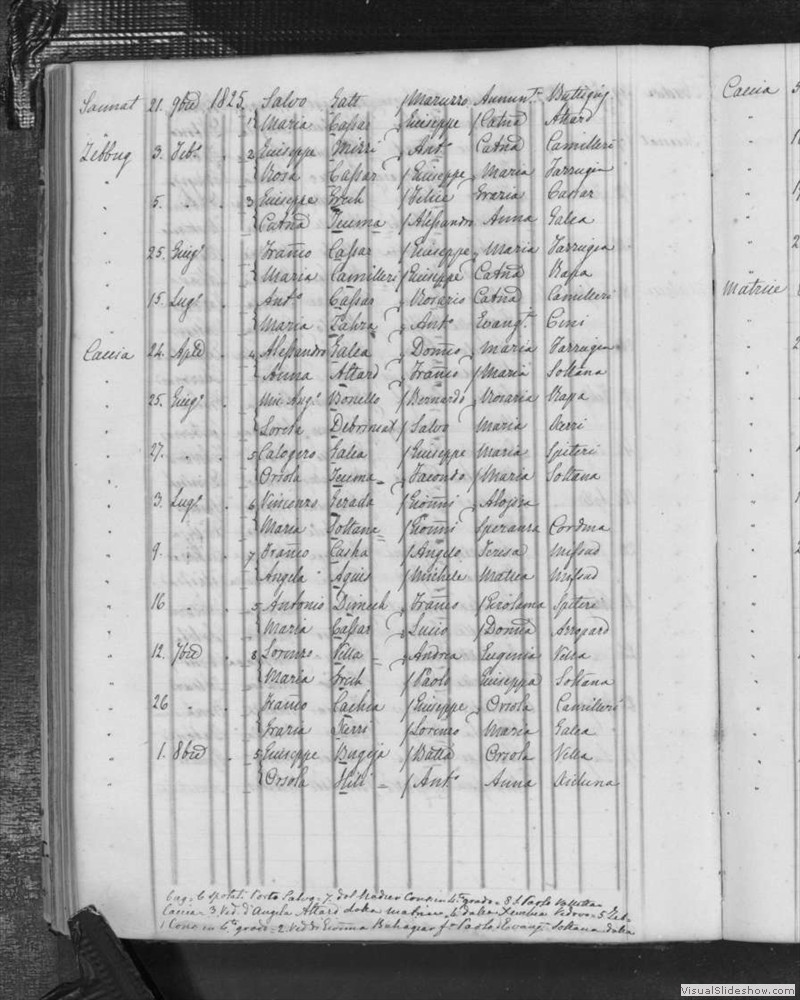 Sannat 21. 9bre 1825. Salvo Gatt Maruzzo Annun.ta Buttigieg
1 Maria Cassar Giuseppe Catna Attard
Zebbug 3. Feb.o 2 Giuseppe Cassar Ant.o Catna Camilleri
Rosa Cassar Giuseppe Maria Farrugia
5. 3 Giuseppe Grech Felice Grazia Cassar
Catna Teuma Alessandro Anna Galea
25. Giug.o Franco Cassar Giuseppe Maria Farrugia
Maria Camilleri Giuseppe Catna Rapa
15. Lug.o Ant.o Cassar Rosario Catna Camilleri
Maria Zahra Ant.o Evang.ta Cini
Caccia 24. Aple 4 Alessandro Galea Domco Maria Farrugia
Anna Attard Franco Maria Soltana
25. Giug.o Mic. Ang.o Bonello Bernardo Rosaria Rapa
Loreta Debrincat Salvo Maria
27. 5 Calogero Galea Giuseppe Maria Spiteri
Orsola Teuma Facondo Maria Soltana
3. Lug.o 6 Vincenzo Gerada Gionni Aloysia
Maria Soltana Gionni Speranza Cordina
9. 7 Franco Casha Angelo Teresa Mifsud
Angela Agius Michele Mattea Mifsud
16 5 Antonio Dimech Franco Girolama Spiteri
Maria Cassar Lucio Domca Azzopard
12. 7bre 8 Lorenzo Vella Andrea Eugenia Vella
Maria Grech Paolo Giuseppa Soltana
26 Franco Cachia Giuseppe Orsola Camilleri
Grazia Lorenzo Maria Galea
1. 8bre 5 Giuseppe Bugeja Batta Orsola Vella
Orsola Hili Ant.o Anna
Salvo = 7. Consan. 4.to grado = 8 S Paolo Valletta =
Caccia = 3. Ved. d'Angela Attard
1 Cons in 4.to grado = 2. Ved di Paolo Soltana
Caccia
Matrice
VisualSlideshow.com